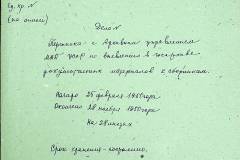 Ед. хр. №
(по описи)
Дело №
Переписка с Архивным управлением
МВД УССР по выявлению в госархиве
документальных материалов к сборникам
Начато 25 февраля 1950 года
Окончено 28 ноября 1950 года
На 28 листах
Срок хранения - постоянно.